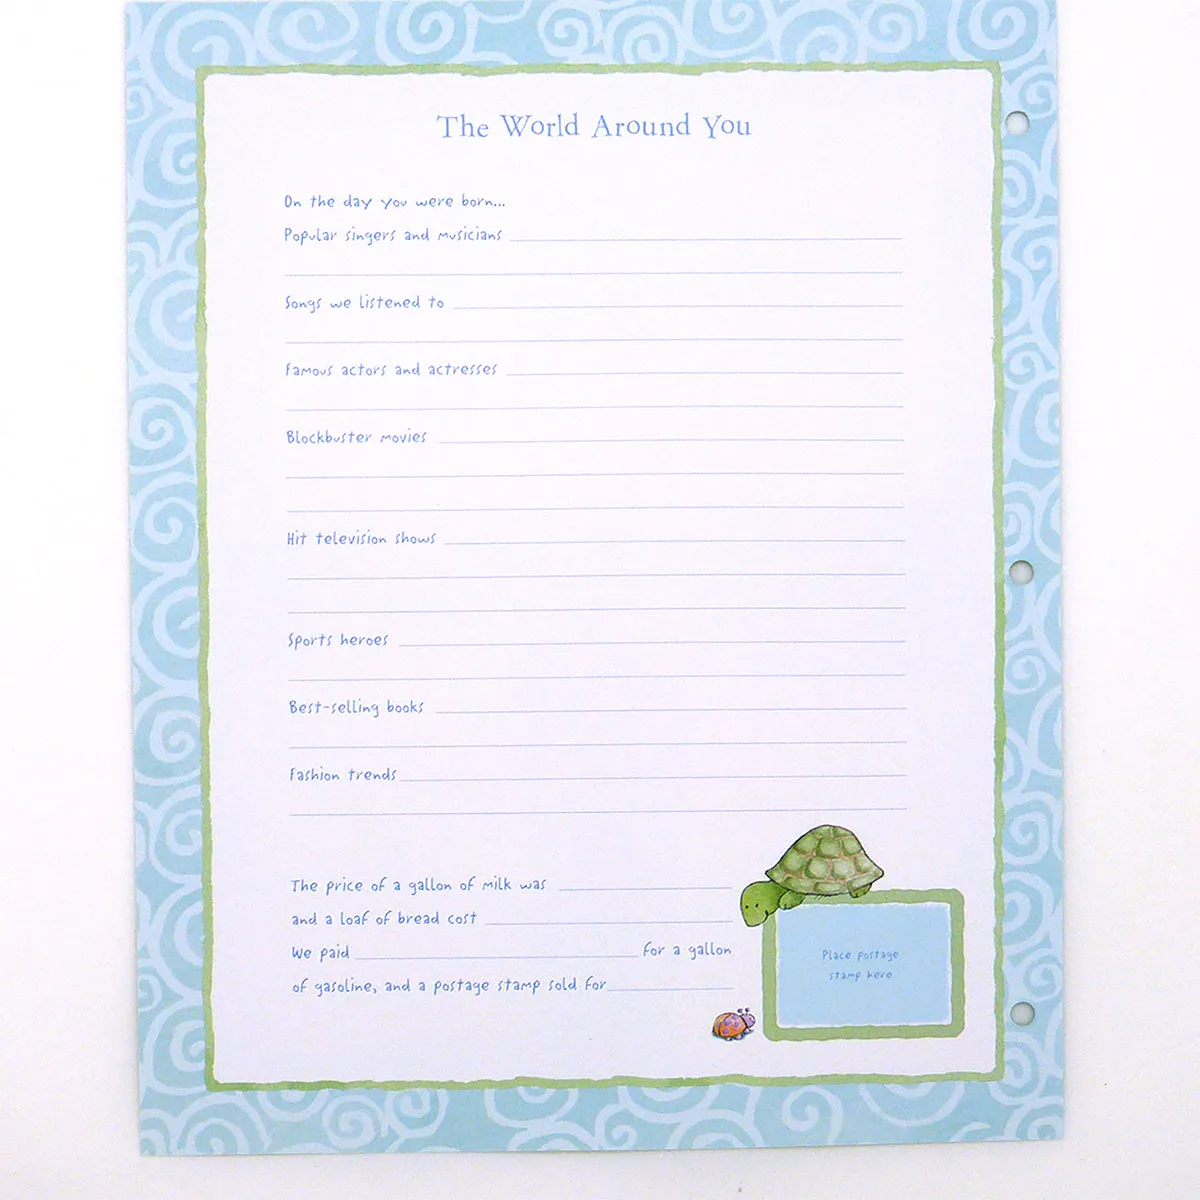 The World Around You
On the day you were born...
Popular singers and musicians
Songs we listened to
Famous actors and actresses
Blockbuster movies
Hit television shows
Sports heroes
Best-selling books
Fashion trends
The price of a gallon of milk was
and a loaf of bread cost
We paid for a gallon
of gasoline, and a postage stamp sold for
Place postage
stamp here